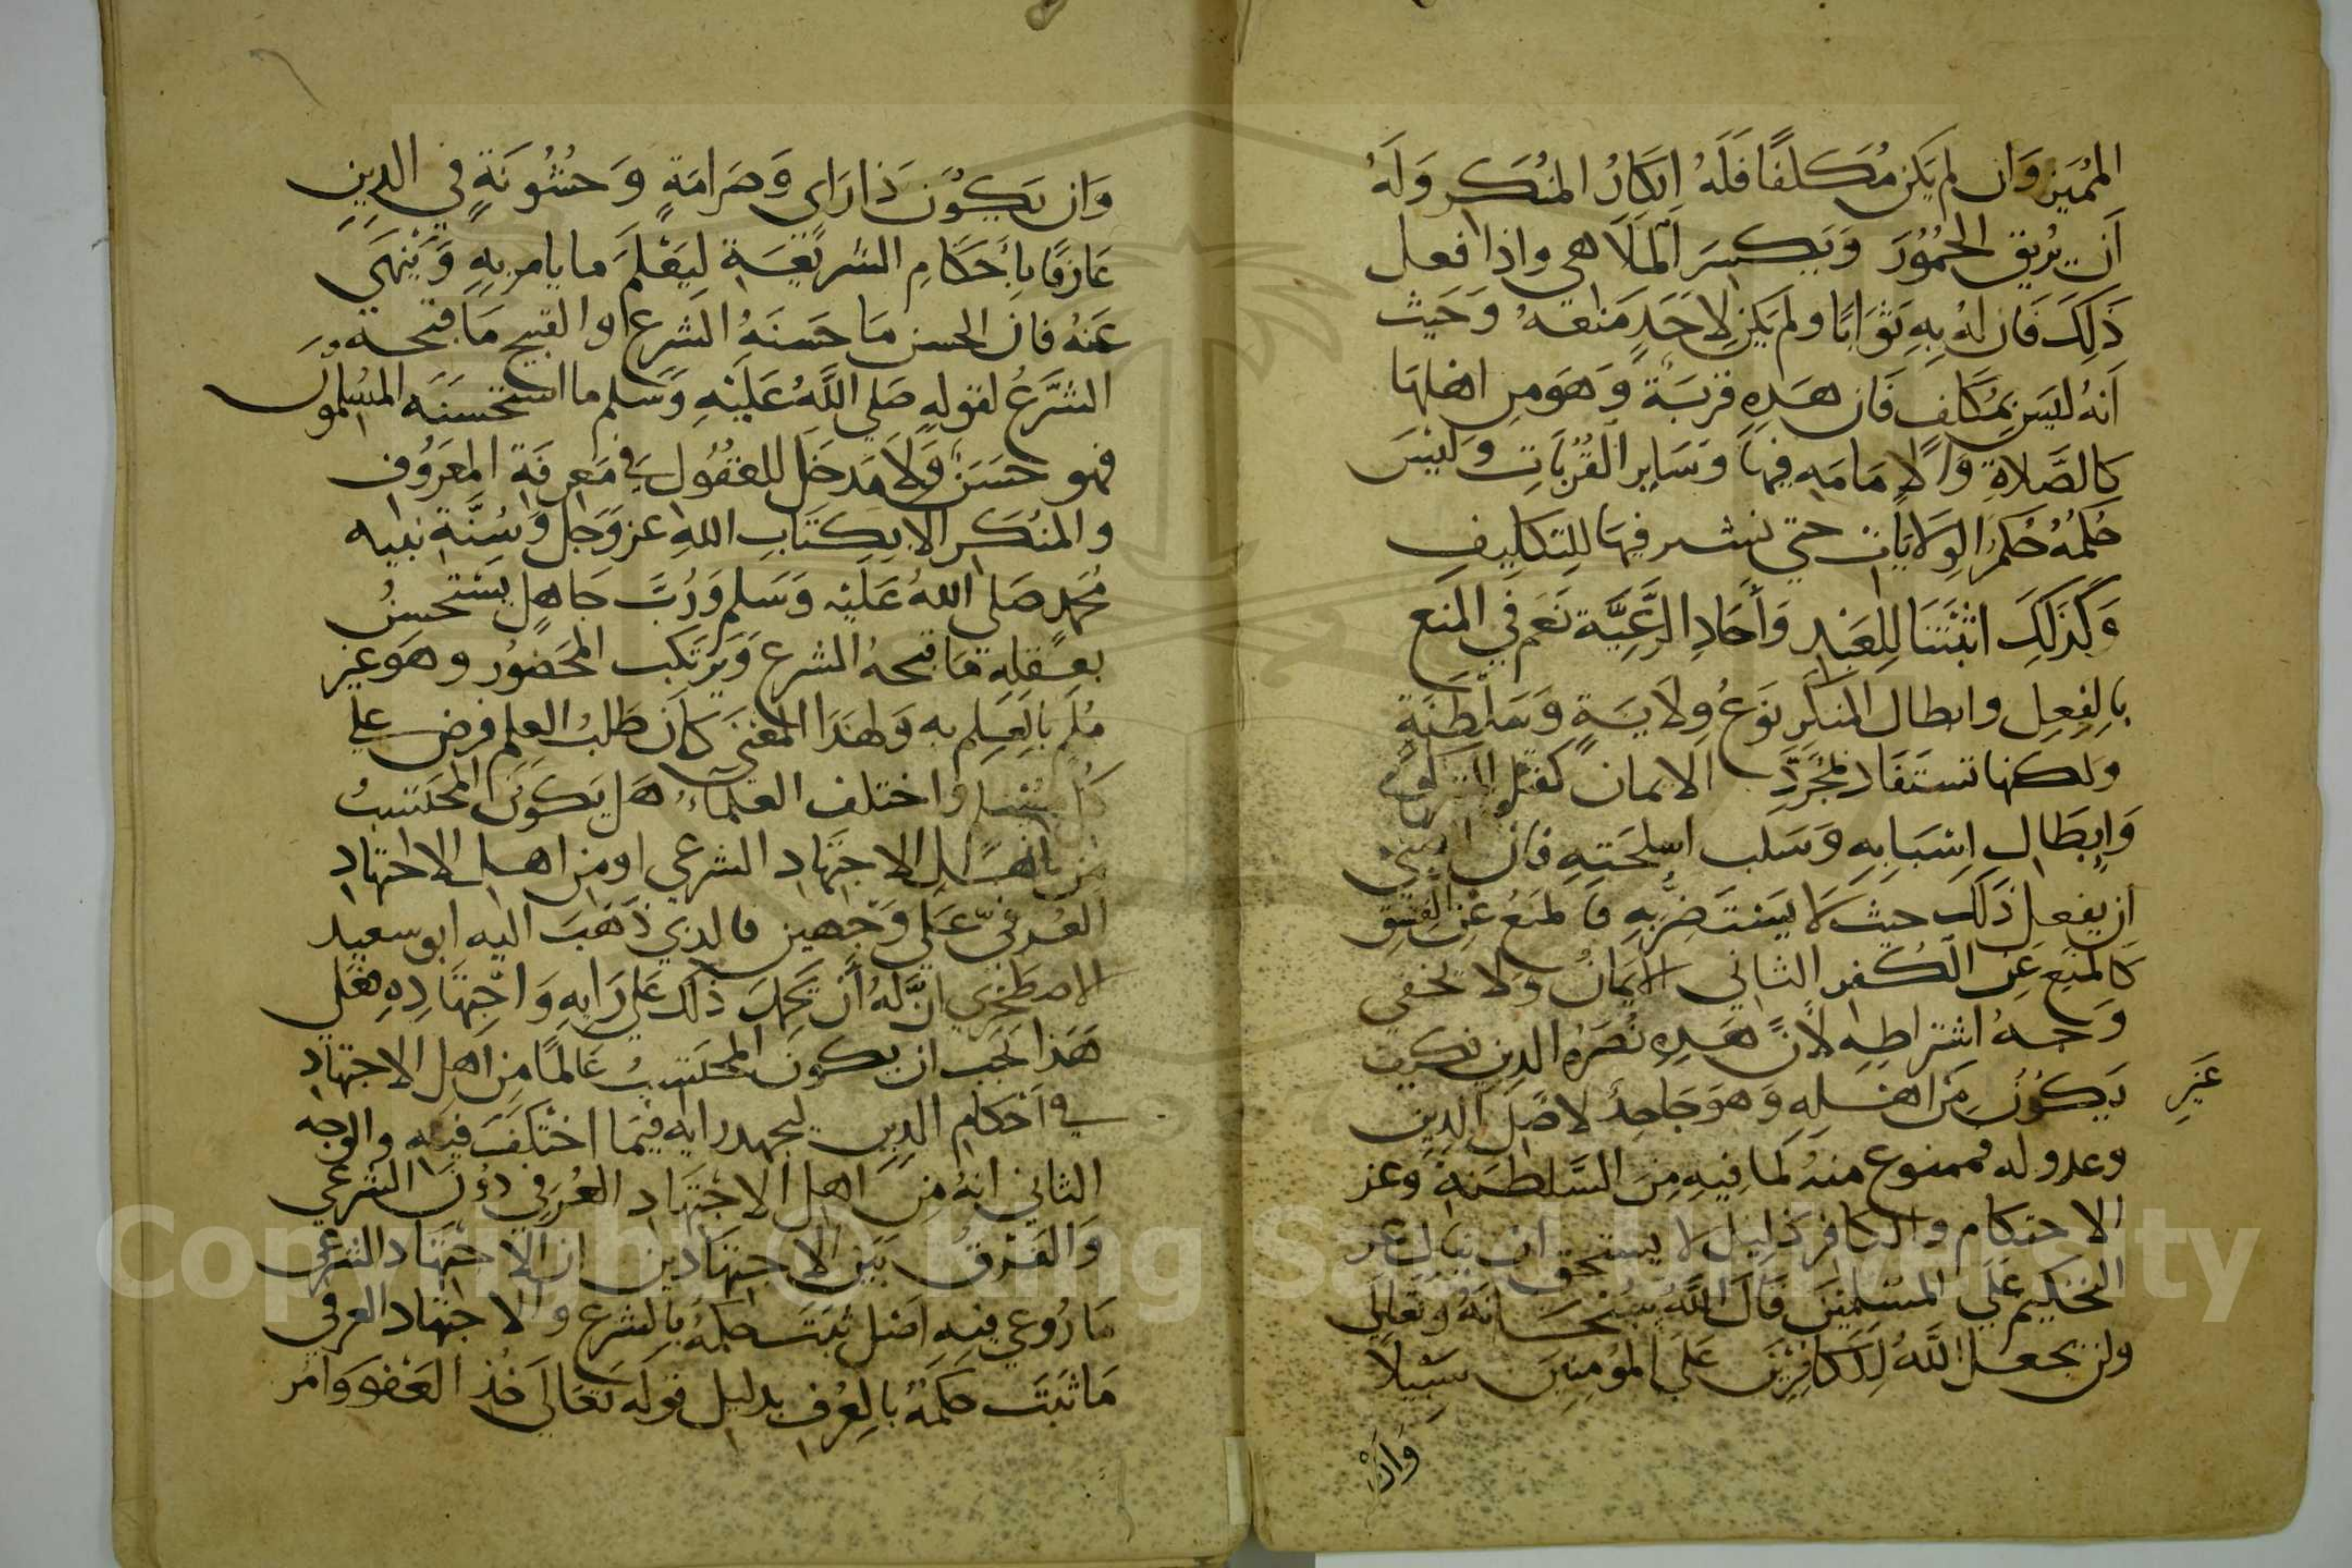 المميز وَان لم يكن مُكلفًا فَلَهُ انكارُ المنكر وَلَهُ
اَن يُريق الخمُوُرَ وَيَكسِرَ المَلَاهي واذا فعل
ذَلِكَ فَان لهُ بِهِ ثَوَابًا ولم يكن لِاَحَدٍ مَنعهُ وَحَيث
اَنهُ ليسَ بمُكَلف فَان هَذِهِ قربَةٌ وَهوَ مِن اهلهَا
كالصَّلاةِ وَالاِمَامَه فيهَا وَسَاير القُرُبَاتِ وَليسَ
حُكمُهُ حُكمُ الوِلَايَات حتي نشر فيهَا للِتكليفِ
وَكَذلِكَ اثبتنَا لِلعَبدِ وَاَحَادِ الرَّعِيَّة نَعَم في المَنع
بالِفِعِل وابطال المنكَر نوَعُ وِلَايَةٍ وَسَلطَنَةٍ
ولكنها تستَفَاد لمجَرَّدِ الايمان كقتل المشرك
وَابِطَالِ اسِبَابِهِ وَسَلب اسلحَتهِ فان
ان يفعل ذَلكَ حيث لَا يَستَضِرُّ بِهِ فالمنعُ عَنِ الفِسْقِ
كَالمَنع عَن الكُفر الثاني الاَيمَانُ ولا تخفي
وَجهُ اشتراطِهِ لانَّ هَذِهِ نُصَرة الدِين فكيفَ
يَكوُنُ مِن اهلِهِ وَهوَ جَاحِدٌ لاصلِ الدِين
غَيرِ
وعدو له فممنوع منهُ لما فيهِ مِنَ السَّلطَنهَ وَعز
الاحتكام والكافر ذَلِيل لا يستحق ان ينال عز
التحكيم عَلَي المسلِمينَ قَالَ اللَّهُ سُبحَانَهُ وَتَعَالَي
ولن يجعل اللَّهُ لِلكَافِرينَ عَلَي المؤمنِين سَبِيلاً
وَانْ
وَان يكوُن ذَا رَاي وَصَرامَةٍ وَخشُونَةٍ في الدِينِ
عَارفًا باَحَكَامِ الشريَعَةِ لِيَعْلَمَ ما يامر بِهِ وَيَنْهَي
عَنهُ فان الحسن مَا حَسنَهُ الشرع والقبيح مَا قبحه
الشَّرعُ لقولهِ صَلي اللَّهُ عَلَيْهِ وَسَلم ما استحَسَنَه المسُلموُن
فهو حسَنٌ وَلَا مَدخَل للعقُول في مَعرفَة المعَروُف
والمنكر الا بكتَابِ اللهِ عز وَجل وَسُنَّةِ نبيه
مُحَمدٍ صَلي اللهُ عَلَيْهِ وَسَلم وَرُبَّ جَاهِلٍ يستحسنُ
بعَقلِهِ مَا قبحهُ الشرع وَيَرتكب المحَضوُر وهوَ غير
مُلمٍ بالعِلم به وَلهَذَا المعَني كاَن طَلبُ العِلم فرض علي
كل مُسلم واختلف العُلمَاءُ هَل يَكوُنَ المحتَسبُ
مِن اَهل الاجتهَادِ الشرعي او مِن اهل الاجتهَادِ
العُرفي عَلَي وَجهين فالذي ذَهَبَ اليه ابو سعيد
الاصطَخري انَّ لهُ اَن يَحمِلَ ذَلكَ علي رَايهِ وَاجتهَادِهِ فعَلَي
هَذا يَجب ان يكونَ المحتسبُ عَالمًا مِن اَهل الاجتهَادِ
في اَحكام الدِين ليجتهد رايه فيَمَا اختَلَفَ فيه والوَجه
الثاني انهُ مِن اَهل الاجتهَادِ العُرفي دوُنَ الشرعي
وَالفَرقُ بَين الاجتهَادين ان الاجتهَاد الشرعي
مَا رُوعي فيهِ اَصل ثبتَ حكمُهُ بالشرع والاجتهَاد العرفي
مَا ثبَتَ حكمُهُ بالعُرف بدليل قوله تعَالي خُذِ العَفوَ وَامُر